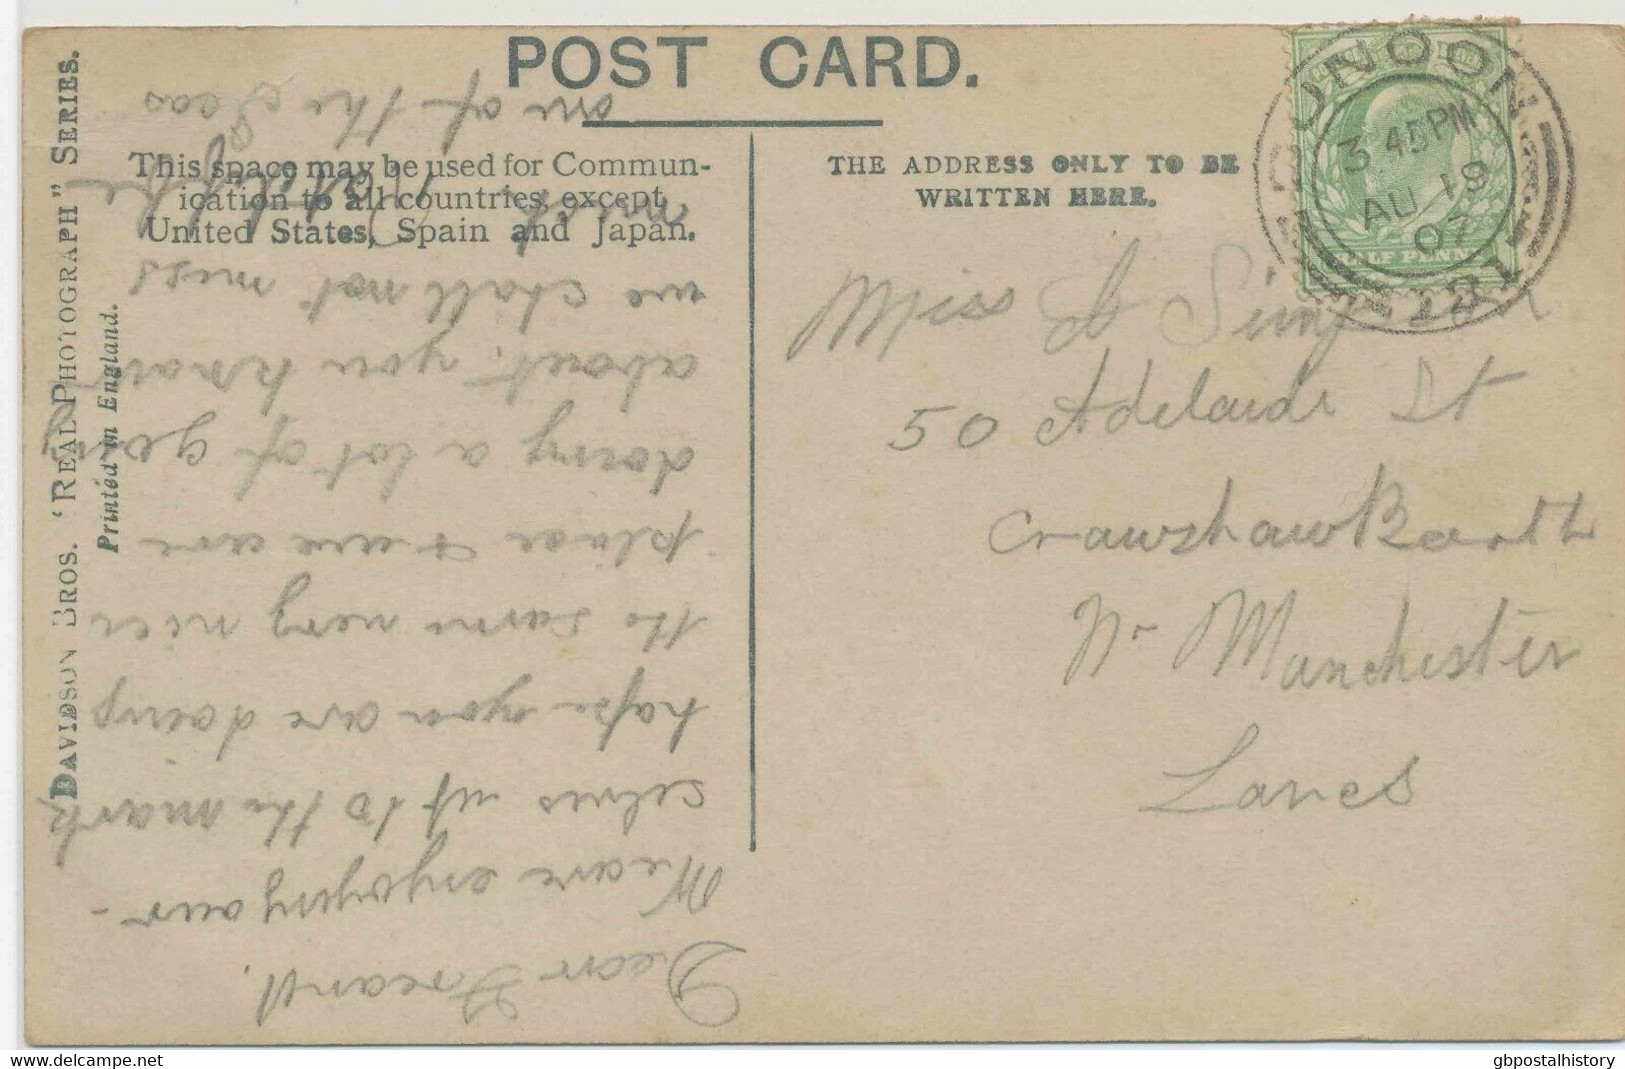 POST CARD.
This space may be used for Commun-
ication to all countries, except
United States, Spain and Japan.
THE ADDRESS ONLY TO BE
WRITTEN HERE.
DAVIDSON BROS. "REAL PHOTOGRAPH" SERIES.
Printed in England.
DUNOON
3 45 PM
AU 19
07
HALF PENNY
Miss
50 Adelaide St
Crawshaw
Nr Manchester
Lancs
Dear
We are enjoying our-
selves up to the mark
hope you are doing
the same very nice
place & we are
doing a lot of going
about, you know
we shall not miss
much
one of the Seas
gbpostalhistory